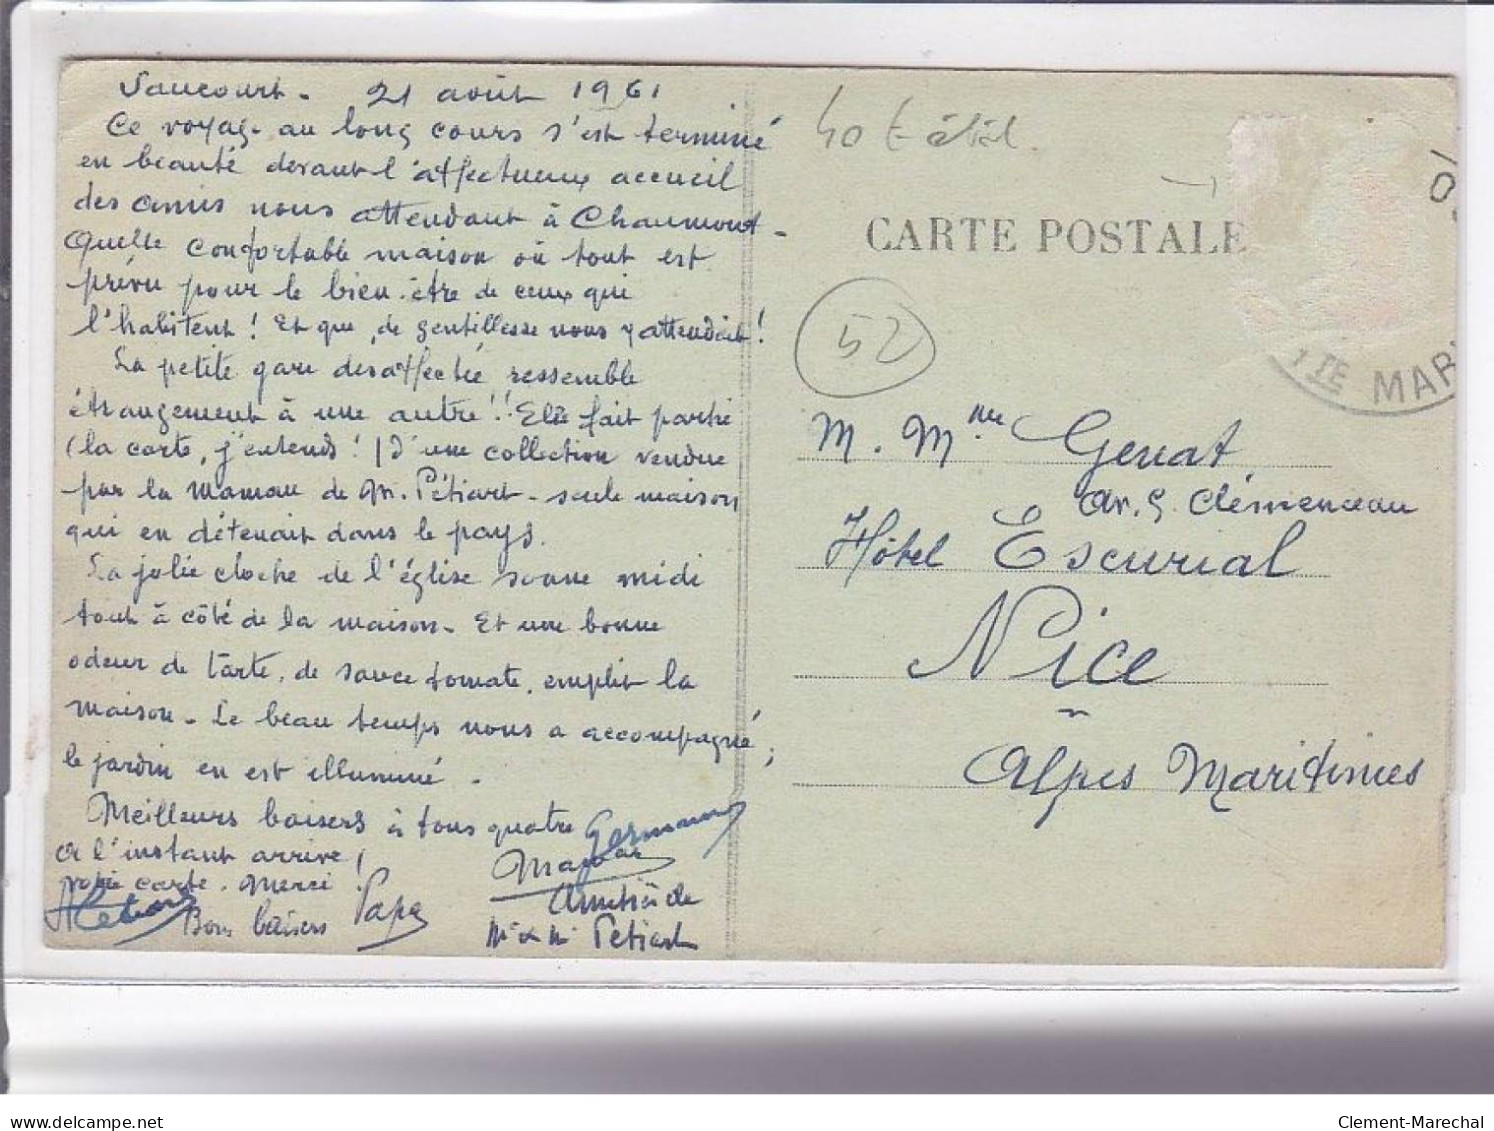 Saucourt - 21 août 1961
Ce voyage au long cours s'est terminé
en beauté devant l'affectueux accueil
des amis nous attendant à Chaumont -
Quelle confortable maison où tout est
prévu pour le bien-être de ceux qui
l'habitent ! Et que de gentillesse nous y attendait !
La petite gare désaffectée ressemble
étrangement à une autre !! Elle fait partie
(la carte, j'entends !) d'une collection vendue
par la maman de M. Pétiart - seule maison
qui en détenait dans le pays.
La jolie cloche de l'église sonne midi
tout à côté de la maison - Et une bonne
odeur de tarte, de sauce tomate, emplit la
maison - Le beau temps nous a accompagné ;
le jardin en est illuminé -
Meilleurs baisers à tous quatre
Germaine
A l'instant arrive
votre carte. Merci !
Maman
Bons baisers Papa
Amitié de
Mr & Me Pétiart
40 E état.
CARTE POSTALE
52
1 TE MAR
M. Mme Genat
Av. G. Clémenceau
Hôtel Escurial
Nice
Alpes Maritimes
delcampe.net
Clement-Marechal